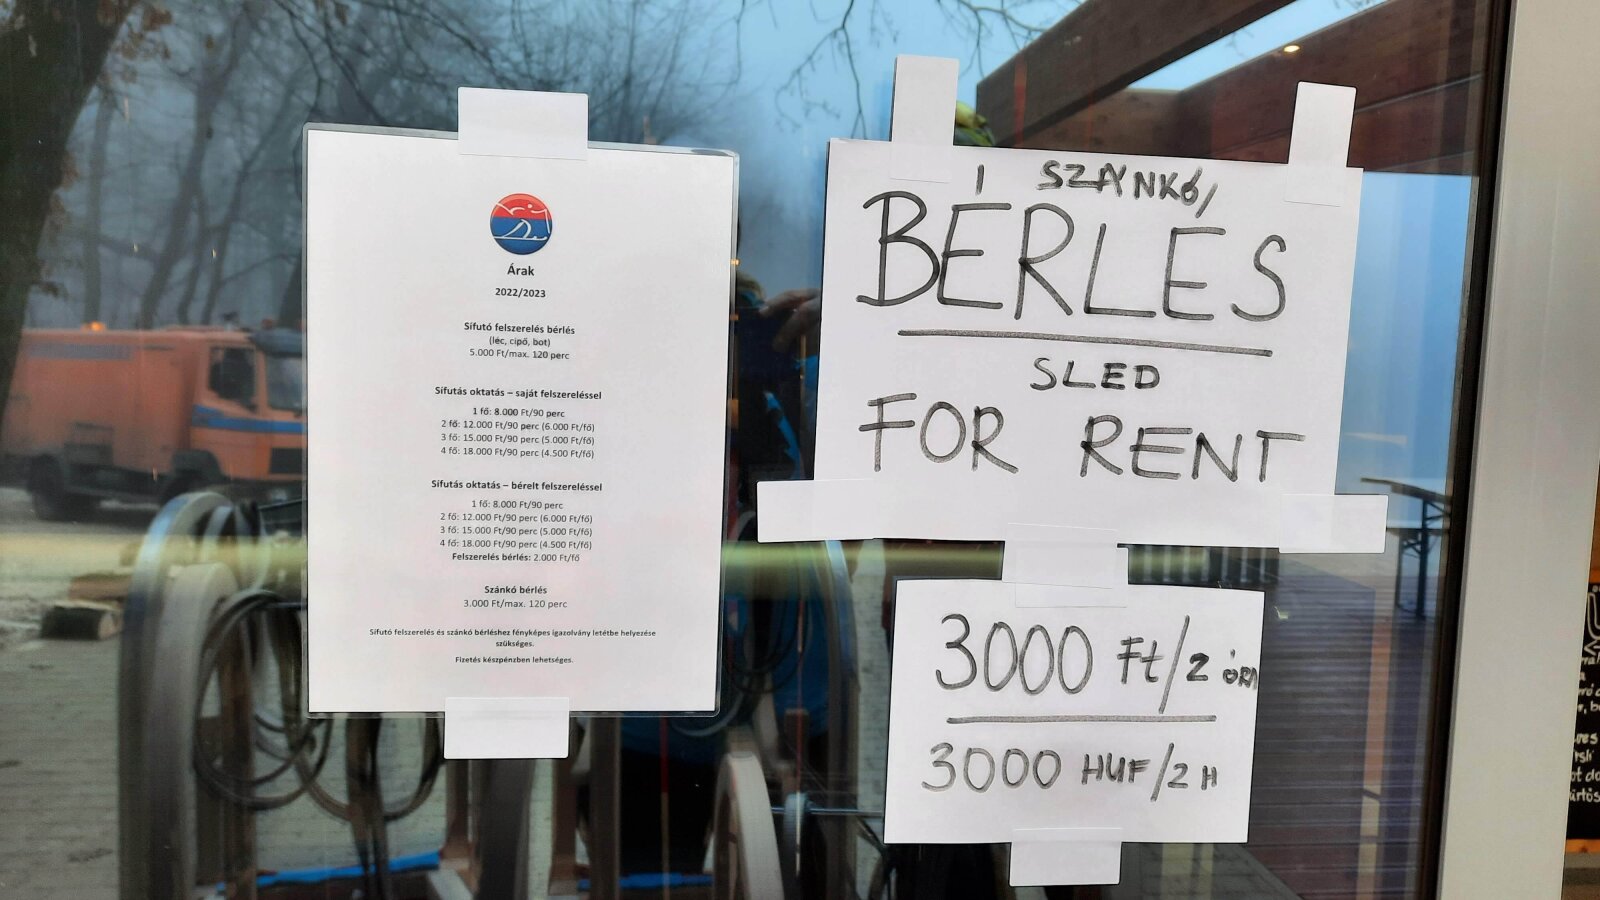 Árak
2022/2023
Sífutó felszerelés bérlés
(léc, cipő, bot)
5.000 Ft/max. 120 perc
Sífutás oktatás – saját felszereléssel
1 fő: 8.000 Ft/90 perc
2 fő: 12.000 Ft/90 perc (6.000 Ft/fő)
3 fő: 15.000 Ft/90 perc (5.000 Ft/fő)
4 fő: 18.000 Ft/90 perc (4.500 Ft/fő)
Sífutás oktatás – bérelt felszereléssel
1 fő: 8.000 Ft/90 perc
2 fő: 12.000 Ft/90 perc (6.000 Ft/fő)
3 fő: 15.000 Ft/90 perc (5.000 Ft/fő)
4 fő: 18.000 Ft/90 perc (4.500 Ft/fő)
Felszerelés bérlés: 2.000 Ft/fő
Szánkó bérlés
3.000 Ft/max. 120 perc
Sífutó felszerelés és szánkó bérléshez fényképes igazolvány letétbe helyezése
szükséges.
Fizetés készpénzben lehetséges.
SZÁNKÓ
BÉRLÉS
SLED
FOR RENT
3000 Ft/2 óra
3000 HUF/2 H